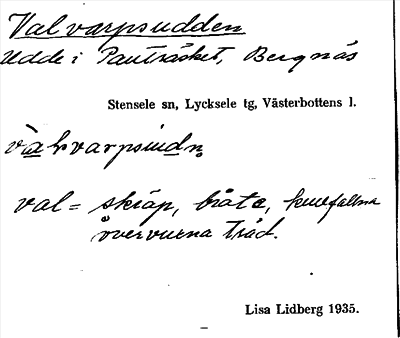 Valvarpsudden
Udde i Pauträsket, Bergnäs
Stensele sn, Lycksele tg, Västerbottens l.
val = skräp, bråte, kullfallna
övervuxna träd.
Lisa Lidberg 1935.